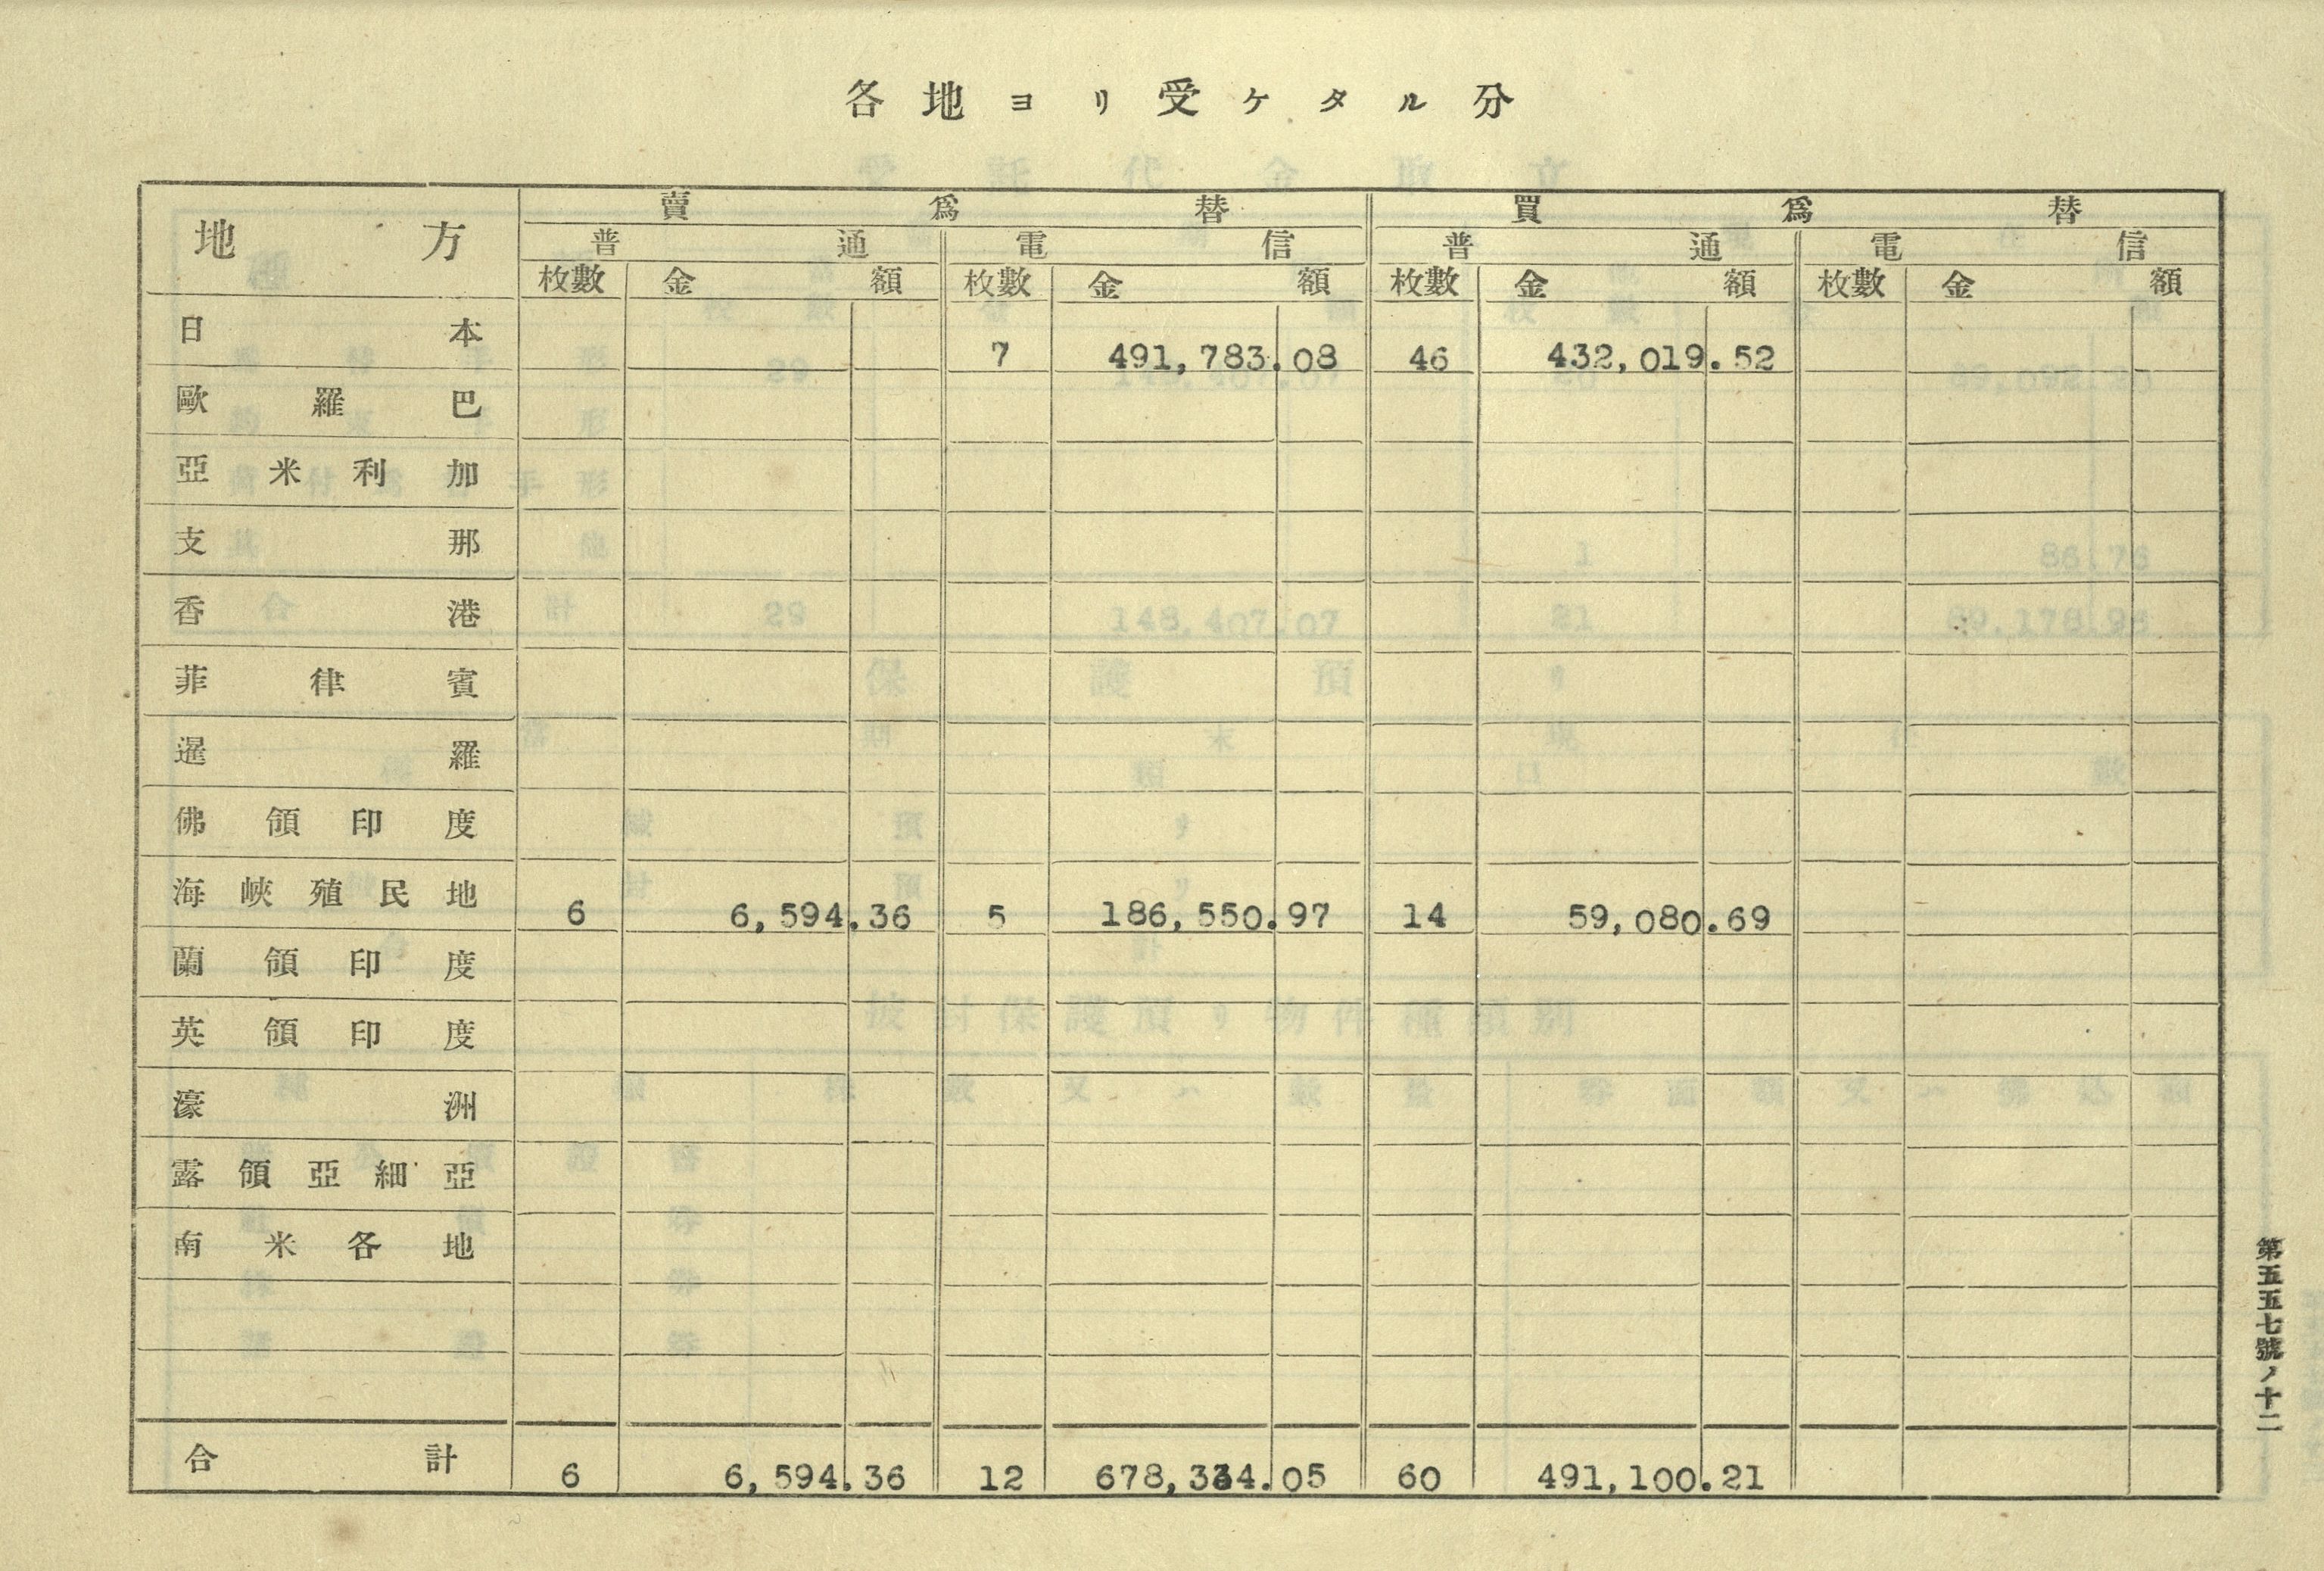 各地ヨリ受ケタル分
地方 賣爲替 買爲替
普通 電信 普通 電信
枚數 金額 枚數 金額 枚數 金額 枚數 金額
日本 7 491,783.08 46 432,019.52
歐羅巴
亞米利加
支那
香港
菲律賓
暹羅
佛領印度
海峽殖民地 6 6,594.36 5 186,550.97 14 59,080.69
蘭領印度
英領印度
濠洲
露領亞細亞
南米各地
合計 6 6,594.36 12 678,334.05 60 491,100.21
第五五七號ノ十二